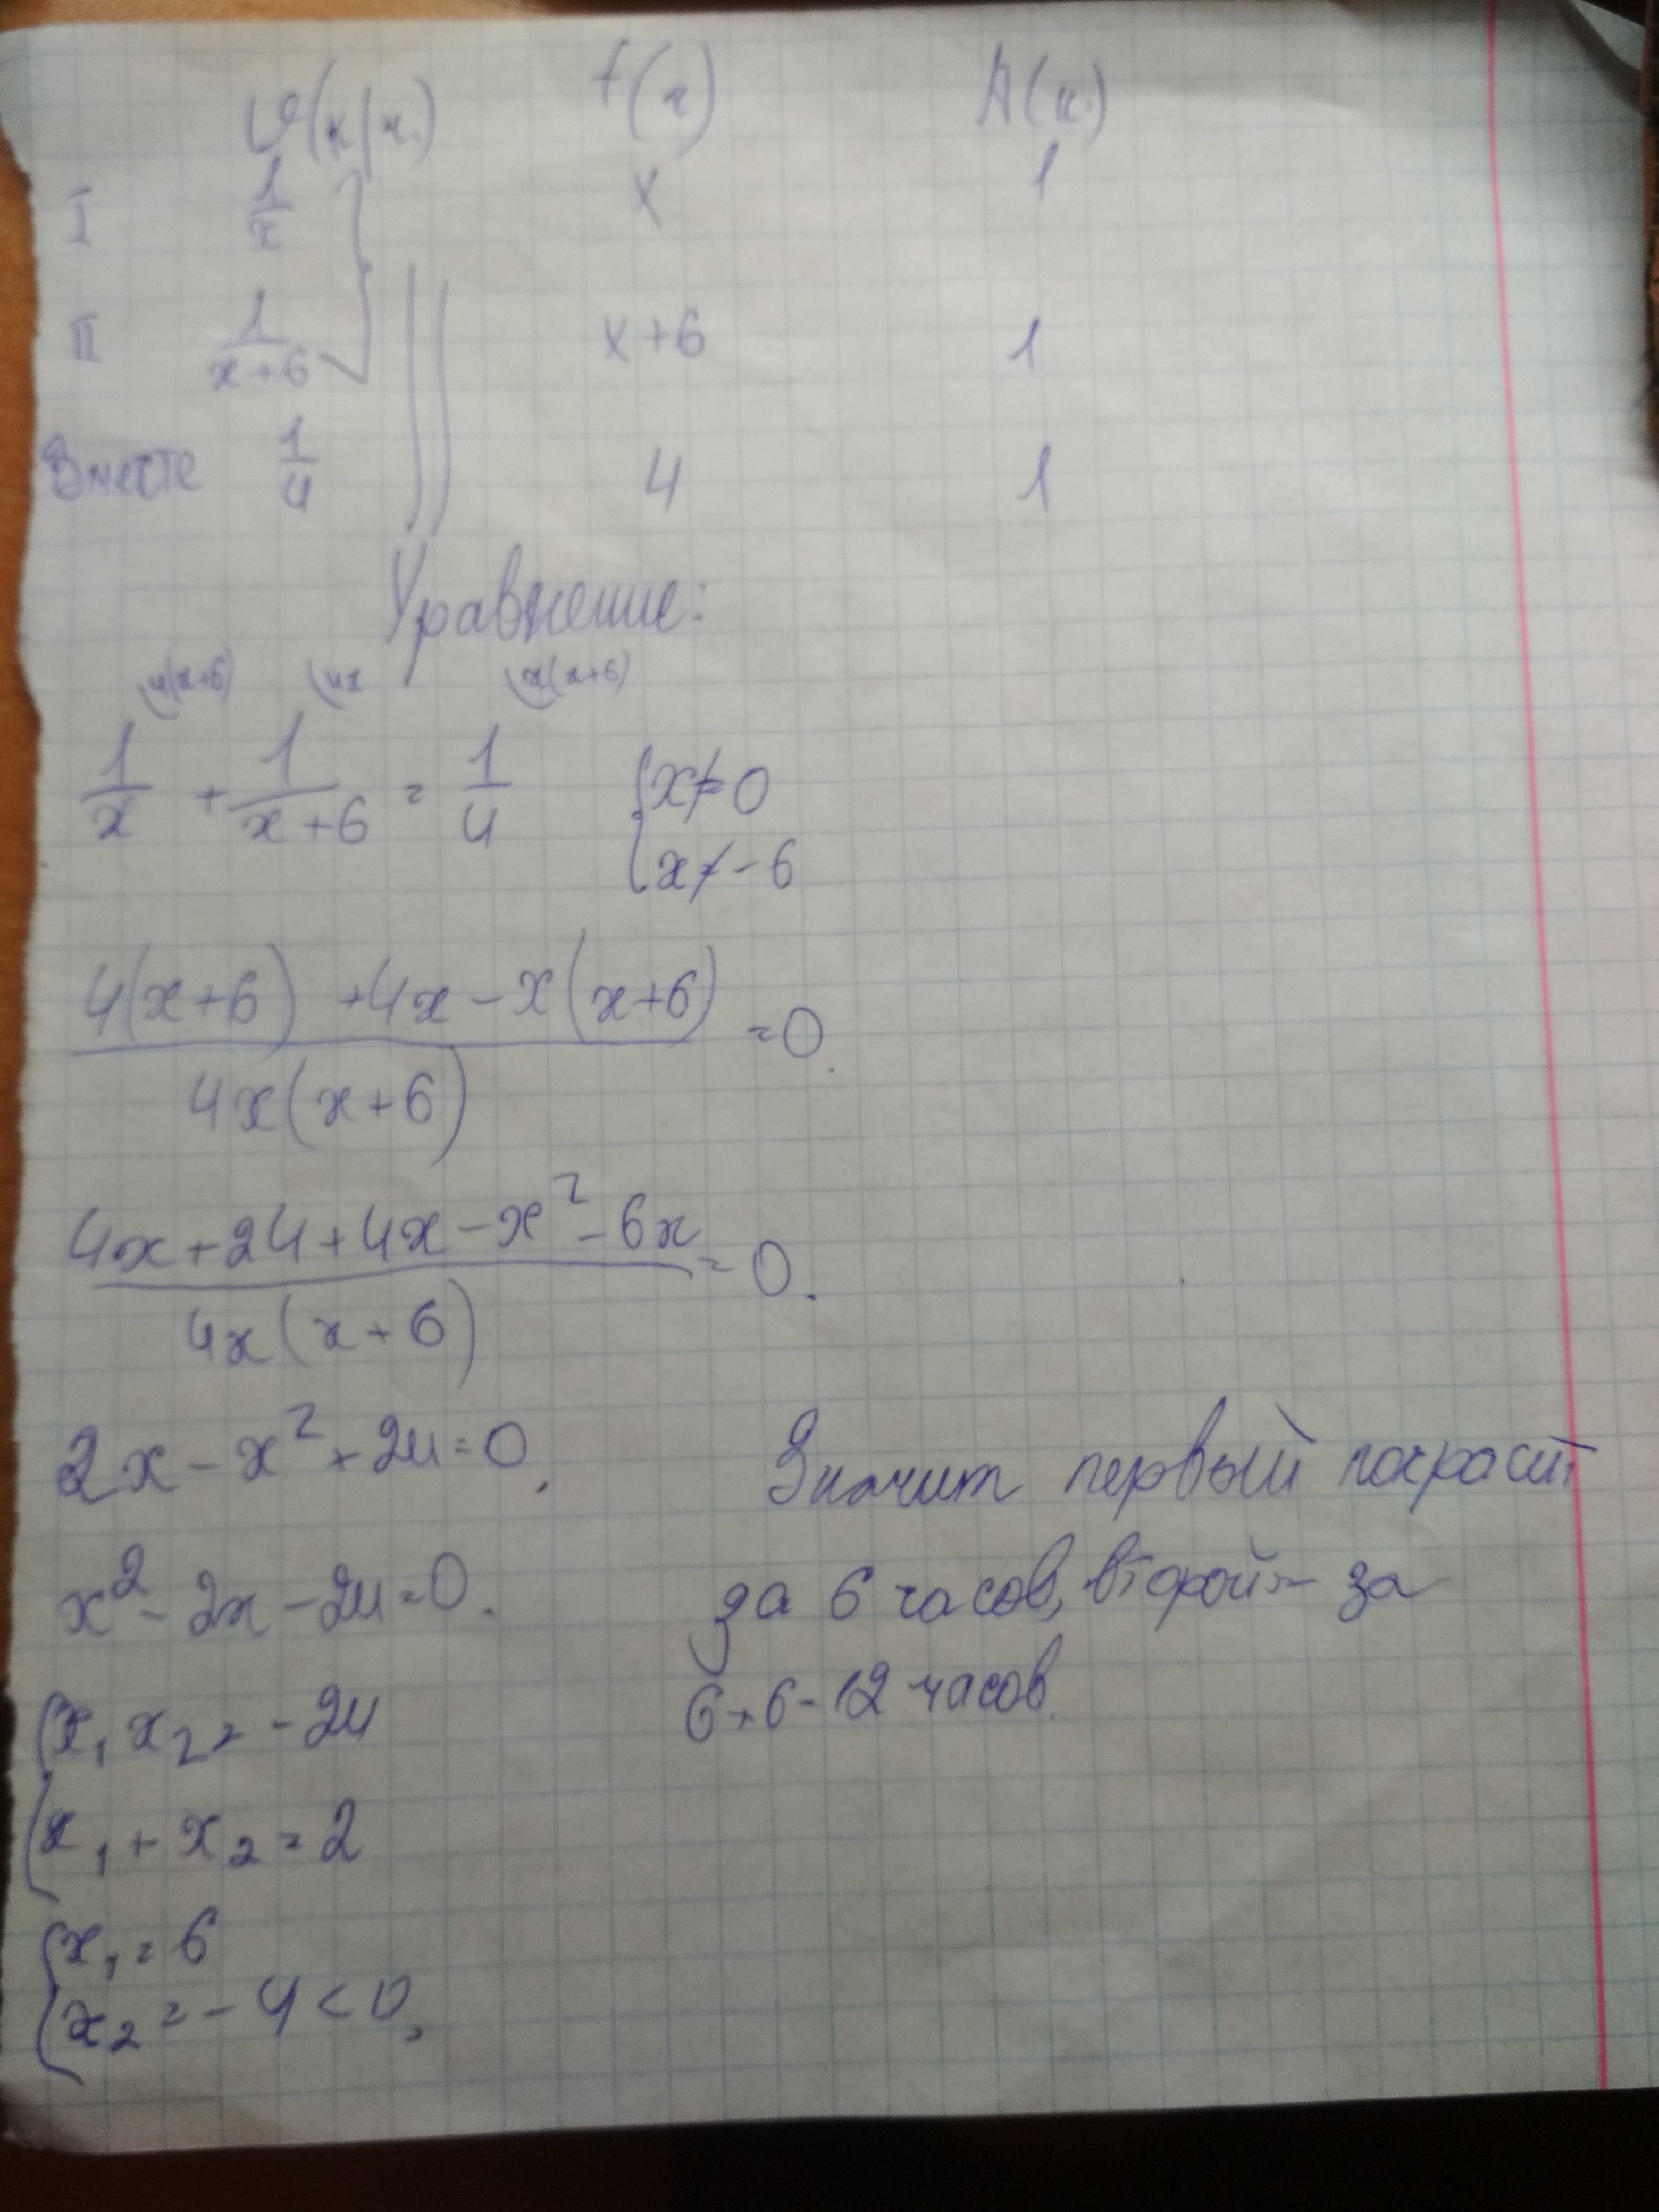 v(к/ч.) t(ч) A(к.)
I 1/x x 1
II 1/(x+6) x+6 1
Вместе 1/4 4 1
Уравнение:
4(x+6) 4x x(x+6)
1/x + 1/(x+6) = 1/4 { x≠0
x≠-6
(4(x+6) +4x - x(x+6))/(4x(x+6)) =0.
(4x+24+4x-x²-6x)/(4x(x+6)) =0.
2x-x²+24=0.
x²-2x-24=0.
{ x₁x₂=-24
x₁+x₂=2
{ x₁=6
x₂=-4<0.
Значит первый покрасит
за 6 часов, второй - за
6+6=12 часов.